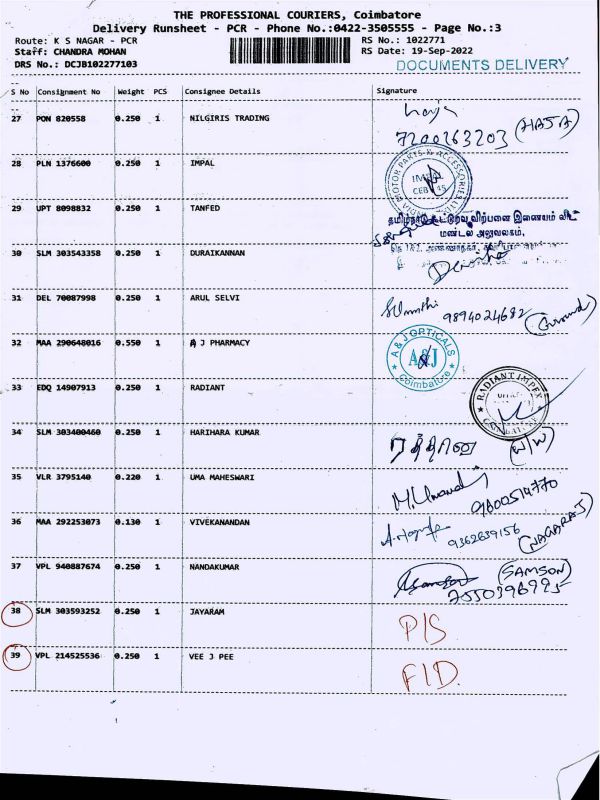 THE PROFESSIONAL COURIERS, Coimbatore
Delivery Runsheet - PCR - Phone No.:0422-3505555 - Page No.:3
Route: K S NAGAR - PCR
RS No.: 1022771
Staff: CHANDRA MOHAN
RS Date: 19-Sep-2022
DRS No.: DCJB102277103
DOCUMENTS DELIVERY
S No Consignment No Weight PCS Consignee Details Signature
27 PON 820558 0.250 1 NILGIRIS TRADING
7200263203 (HAJA)
28 PLN 1376600 0.250 1 IMPAL
MOTOR PARTS & ACCESSORIES
29 UPT 8098832 0.250 1 TANFED
தமிழ்நாடு கூட்டுறவு விற்பனை இணையம் லிட்
மண்டல அலுவலகம்,
30 SLM 303543358 0.250 1 DURAIKANNAN
31 DEL 70087998 0.250 1 ARUL SELVI
9894024682
32 MAA 290648016 0.550 1 A J PHARMACY
A & J OPTICALS
A&J
Coimbatore
33 EDQ 14907913 0.250 1 RADIANT
RADIANT IMPEX
34 SLM 303400460 0.250 1 HARIHARA KUMAR
(W/W)
35 VLR 3795140 0.220 1 UMA MAHESWARI
9600514770
36 MAA 292253073 0.130 1 VIVEKANANDAN
9362639156 (NAGARAJ)
37 VPL 940887674 0.250 1 NANDAKUMAR
(SAMSON)
7550396995
38 SLM 303593252 0.250 1 JAYARAM
P/S
39 VPL 214525536 0.250 1 VEE J PEE
F/D.